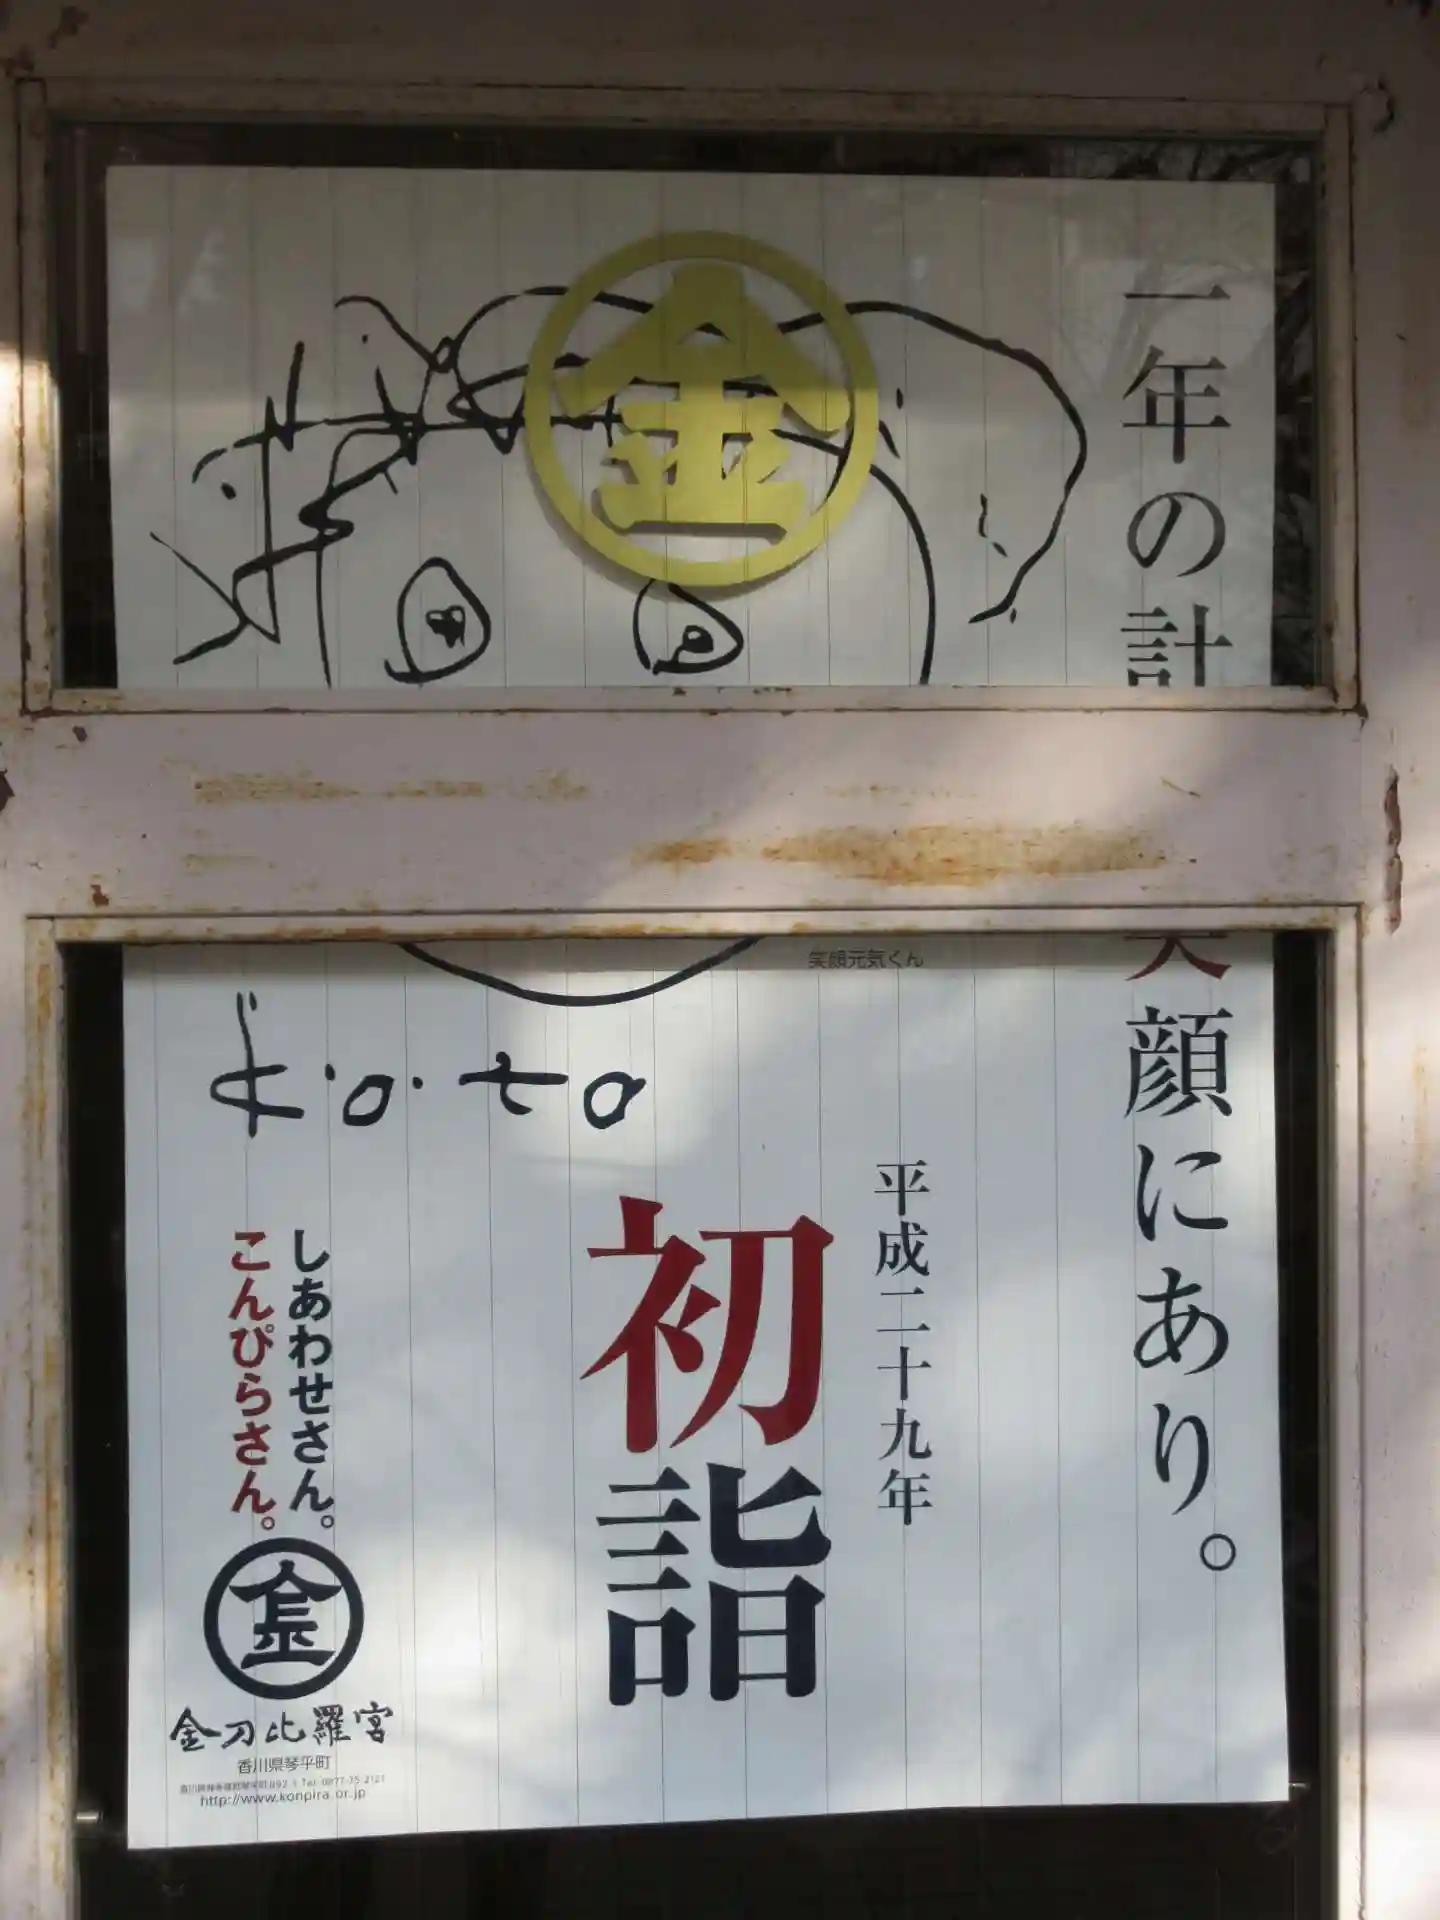 一年の計
笑顔にあり。
金
笑顔元気くん
平成二十九年
初詣
ko.ta
しあわせさん。
こんぴらさん。
金
金刀比羅宮
香川県琴平町
http://www.konpira.or.jp